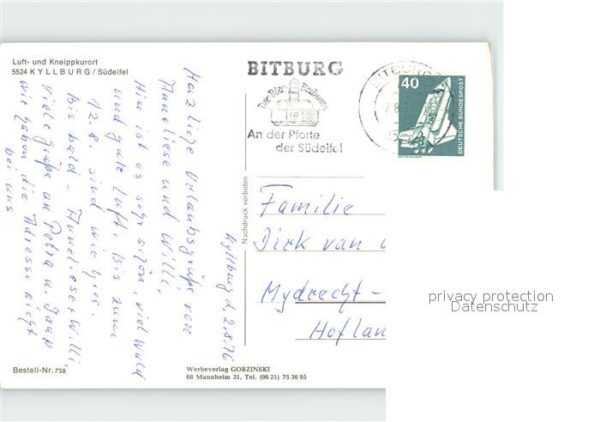 Luft- und Kneippkurort
5524 KYLLBURG / Südeifel
Kyllburg d, 2.8.76
Herzliche Urlaubsgrüße von
Anneliese und Willi,
Hier ist es sehr schön, viel Wald
und gute Luft. Bis zum
12.8. sind wir hier.
Bis bald - Anneliese + Willi,
viele Grüße an Petra u. Jaap
wir haben die Adresse nicht
bei uns
Bestell-Nr. 758
Nachdruck verboten
Werbeverlag GORZINSKI
68 Mannheim 31, Tel. (06 21) 75 36 95
BITBURG
An der Pforte
der Südeifel
40
DEUTSCHE BUNDESPOST
Familie
Dirk van
Mydrecht -
Hofland
privacy protection
Datenschutz